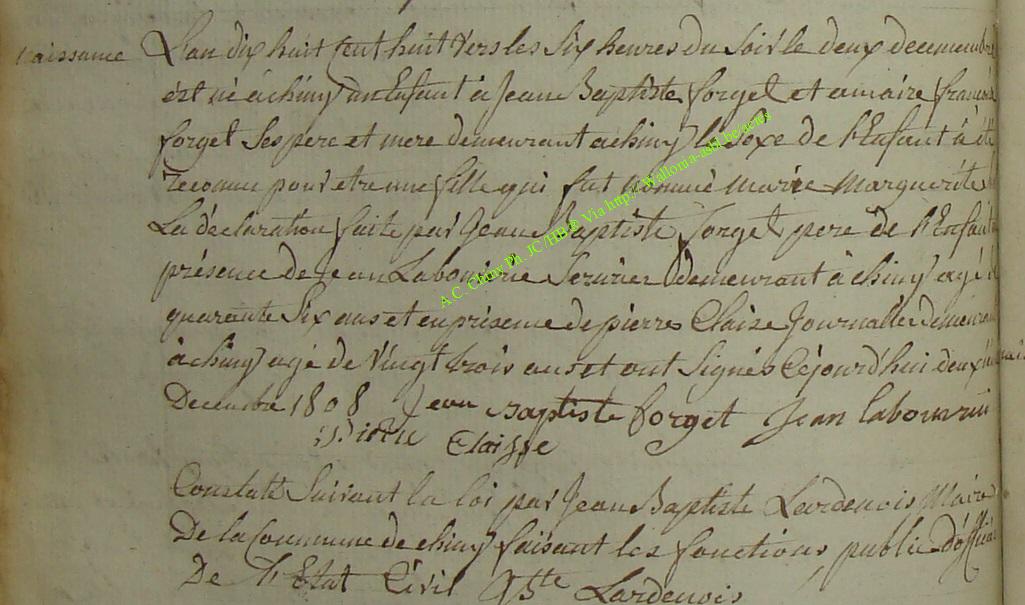 naissance L'an dix huit cent huit vers les six heures du soir le deux decemembre
est né à chiny un Enfant à Jean Baptiste forget et a marie francois
forget Ses pere et mere demeurant a chiny le Sexe de l'Enfant à été
reconnu pour etre une fille qui fut nommé marie marguerite
La déclaration faite par Jean Baptiste forget pere de l'Enfant
présence de jean Labouverie Serurier demeurant à chiny agé de
quarante Six ans et en présence de pierre Claise Journallier demeurant
à chiny agé de vingt trois ans et ont signés Cejourd'hui deux
Decembre 1808 Jean Baptiste forget Jean labouveri
pierre Claisse
Constaté Suivant la loi par Jean Baptiste Lardenois Maire
De la Commune de chiny faisant les fonctions public d'officier
De l'Etat Civil JBtte Lardenois
A.C. Chiny Ph. JC/HB © Via http://wallonia-asbl.be/actes